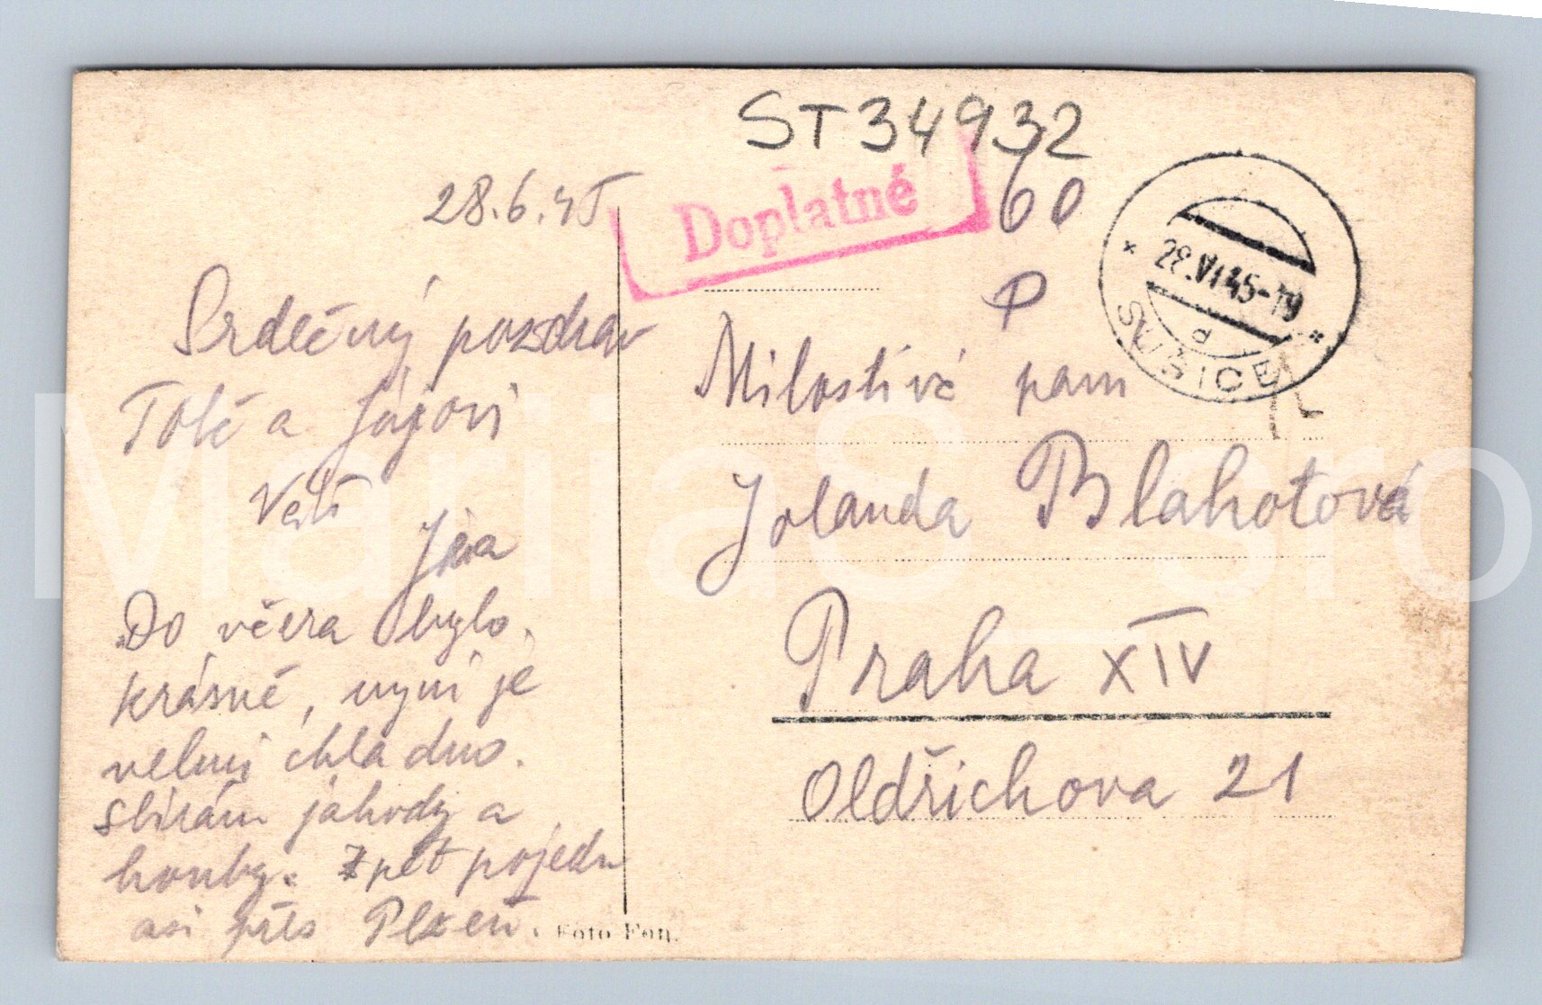 ST34932
28.6.45
Doplatné
60
P
28.VI.45-19
d
SUŠICE
Srdečný pozdrav
Totě a Jájovi
Váš
Jára
Do včera bylo
krásně, nyní je
velmi chladno.
sbírám jahody a
houby. Zpět pojedu
asi přes Plzeň.
Milostivá paní
Jolanda Blahotová
Praha XIV
Oldřichova 21
Foto Fon.
MariiaS sro